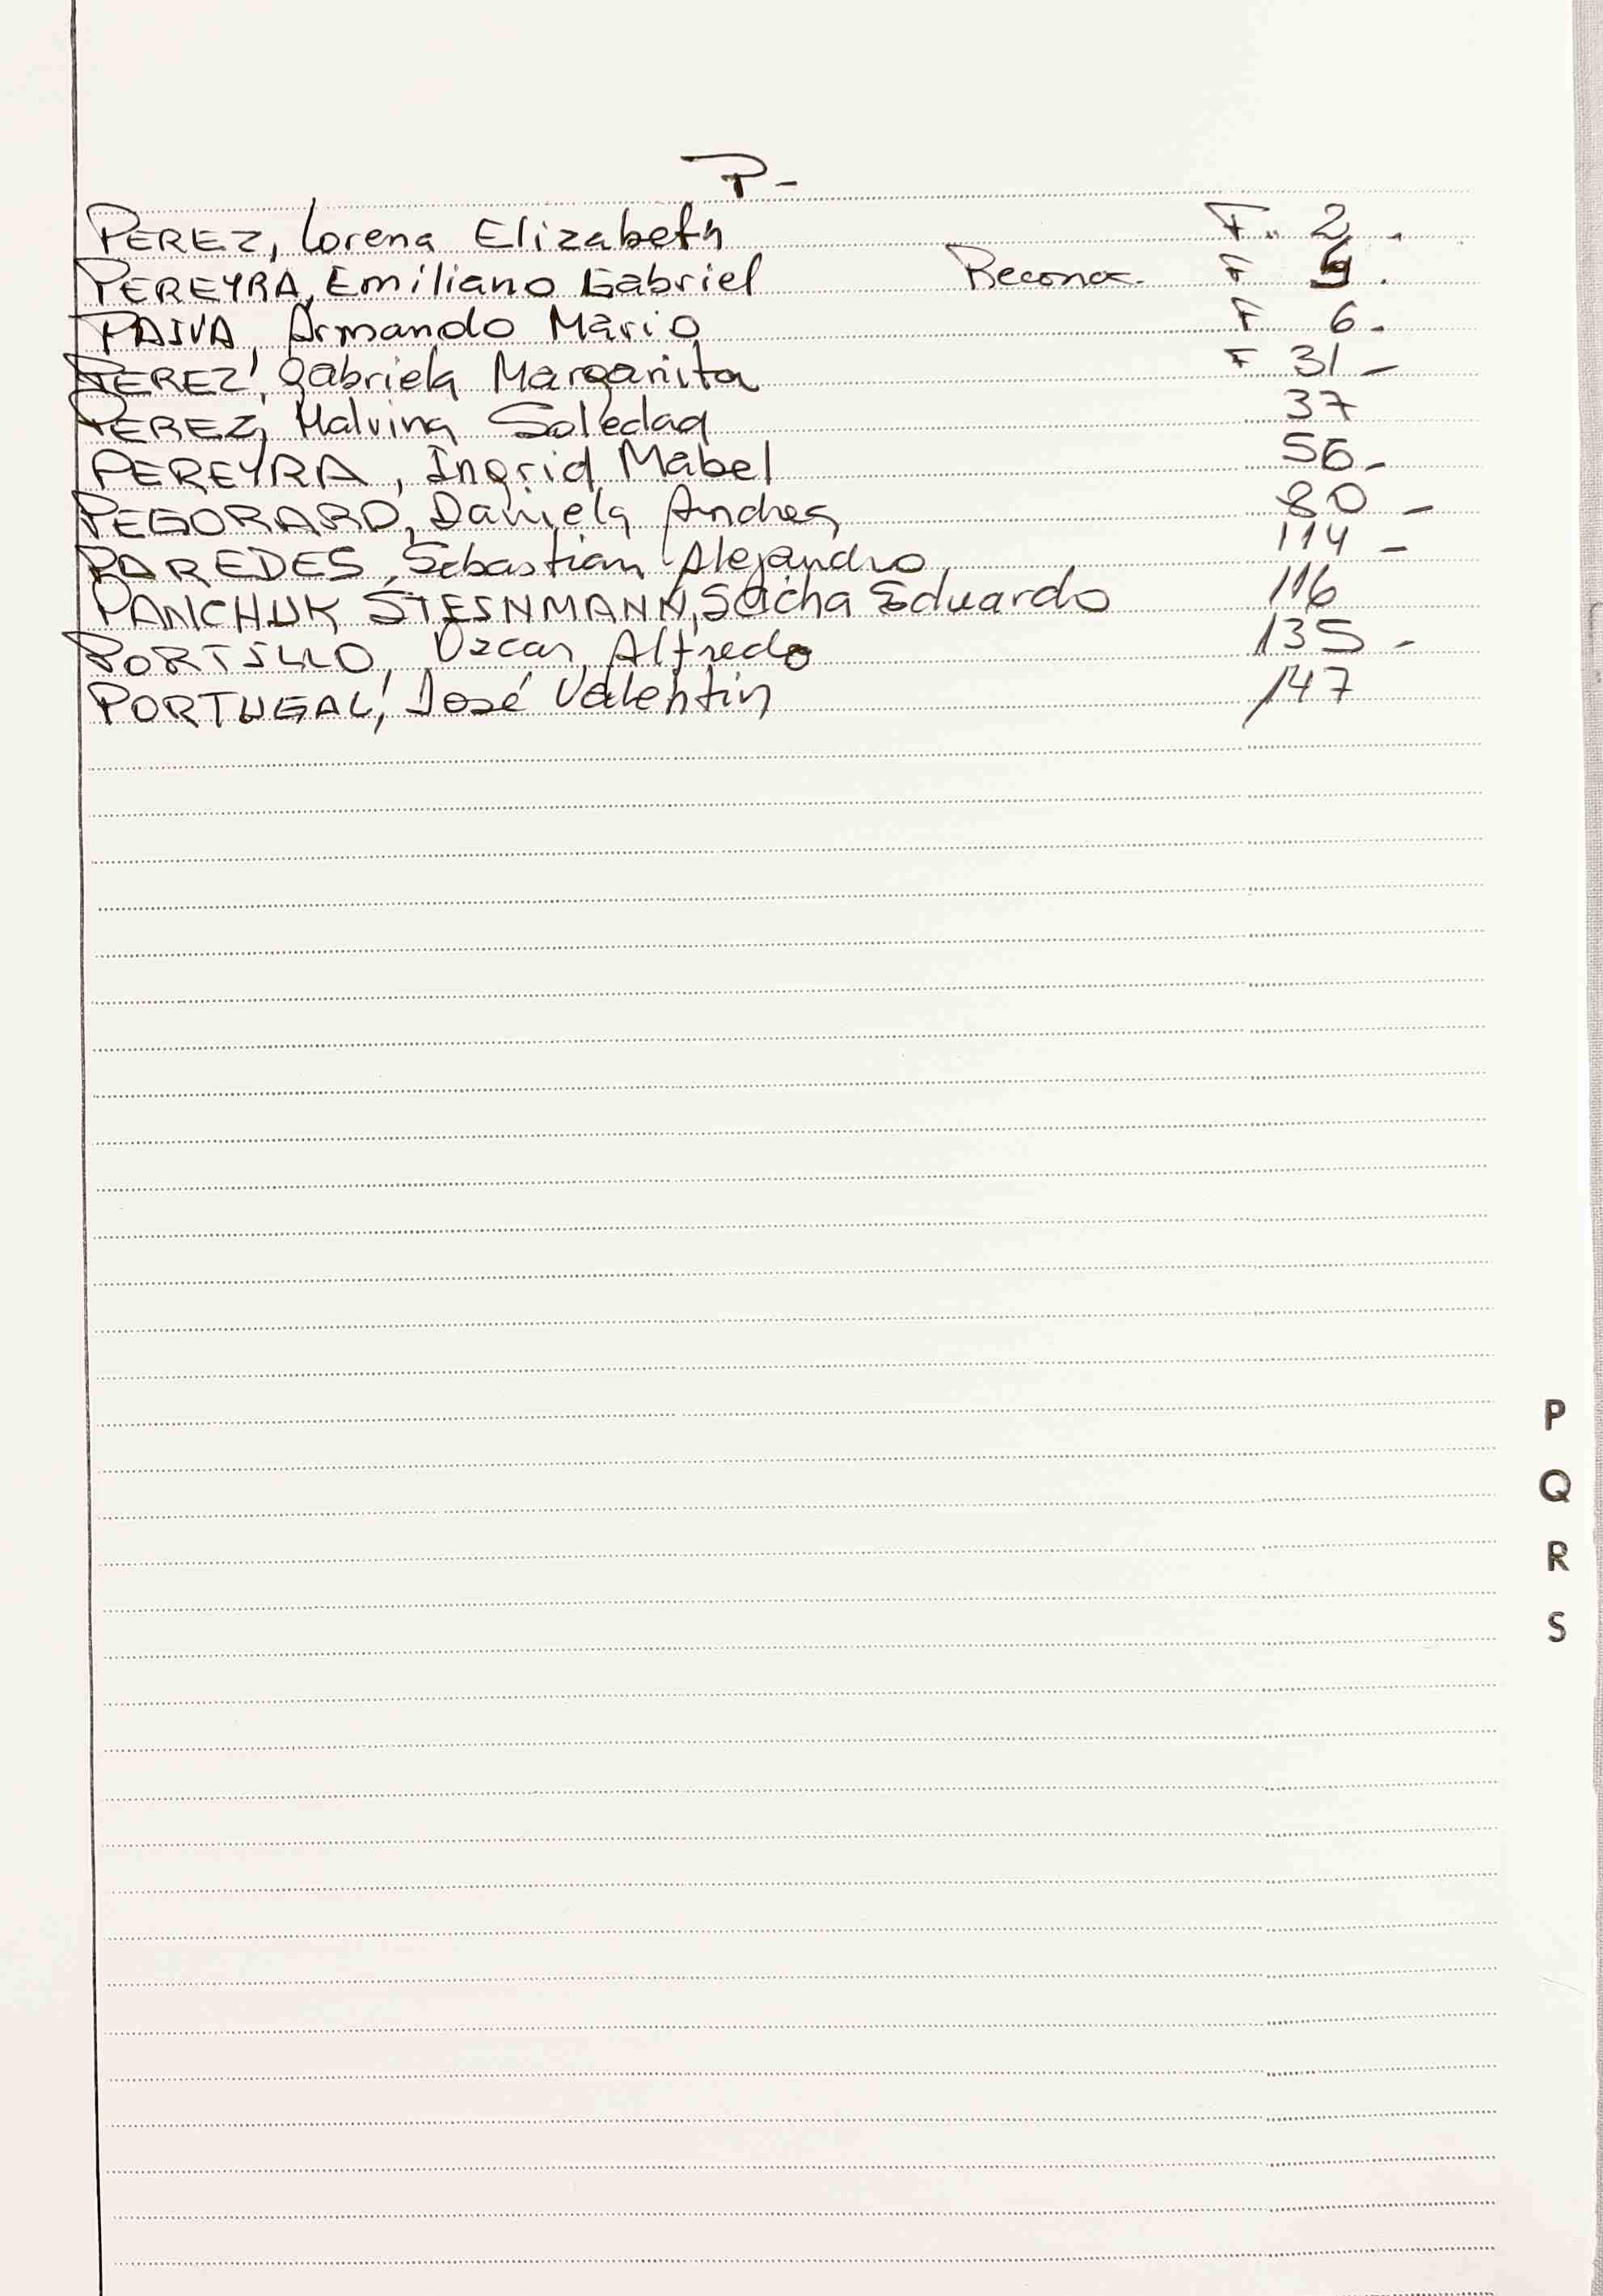 P-
PEREZ, Lorena Elizabeth F. 2 -
PEREYRA, Emiliano Gabriel Reconoc. F .
PAIVA, Armando Mario F 6.
PEREZ, Gabriela Margarita F 31 -
PEREZ, Malvina Soledad 37
PEREYRA, Ingrid Mabel 56 -
PEGORARO, Daniela Andrea 80 -
PAREDES, Sebastian Alejandro 114 -
PANCHUK STEINMANN, Sacha Eduardo 116
PORTILLO, Oscar Alfredo 135 -
PORTUGAL, José Valentin 147
P
Q
R
S